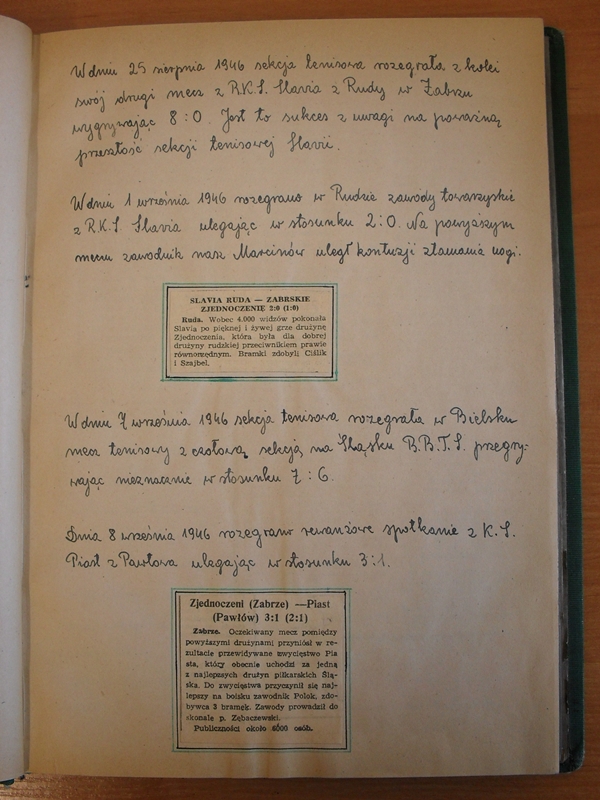 W dniu 25 sierpnia 1946 sekcja tenisowa rozegrała z kolei
swój drugi mecz z R.K.S. Slavia z Rudy w Zabrzu
wygrywając 8:0. Jest to sukces z uwagi na poważną
przeszłość sekcji tenisowej Slavii.
W dniu 1 września 1946 rozegrano w Rudzie zawody towarzyskie
z R.K.S. Slavia ulegając w stosunku 2:0. Na powyższym
meczu zawodnik nasz Marcinów uległ kontuzji złamania nogi.
SLAVIA RUDA — ZABRSKIE
ZJEDNOCZENIE 2:0 (1:0)
Ruda. Wobec 4.000 widzów pokonała
Slavia po pięknej i żywej grze drużynę
Zjednoczenia, która była dla dobrej
drużyny rudzkiej przeciwnikiem prawie
równorzędnym. Bramki zdobyli Ciślik
i Szajbel.
W dniu 7 września 1946 sekcja tenisowa rozegrała w Bielsku
mecz tenisowy z czołową sekcją na Śląsku B.B.T.S. przegry-
wając nieznacznie w stosunku 7:6.
Dnia 8 września 1946 rozegrano rewanżowe spotkanie z K.S.
Piast z Pawłowa ulegając w stosunku 3:1.
Zjednoczeni (Zabrze) —Piast
(Pawłów) 3:1 (2:1)
Zabrze. Oczekiwany mecz pomiędzy
powyższymi drużynami przyniósł w re-
zultacie przewidywane zwycięstwo Pia
sta, który obecnie uchodzi za jedną
z najlepszych drużyn piłkarskich Ślą-
ska. Do zwycięstwa przyczynił się naj-
lepszy na boisku zawodnik Polok, zdo-
bywca 3 bramek. Zawody prowadził do
skonale p. Zębaczewski.
Publiczności około 6000 osób.